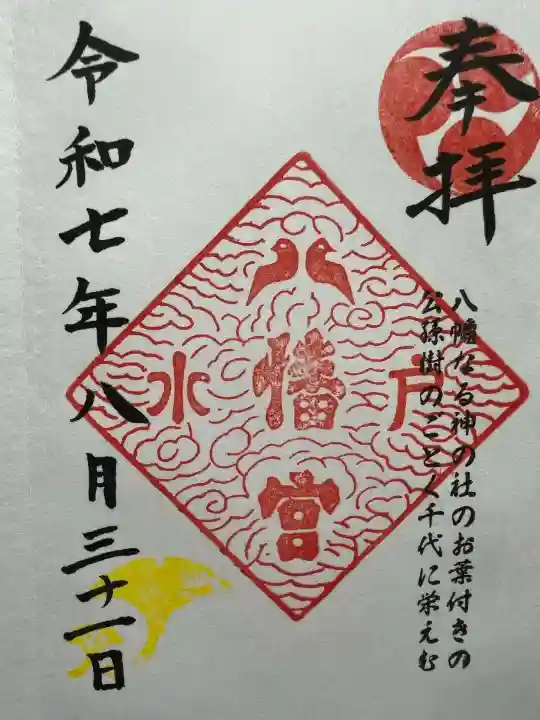 奉拝
八幡なる神の社のお葉付きの
公孫樹のごとく千代に栄えむ
水戸
八幡宮
令和七年八月三十一日